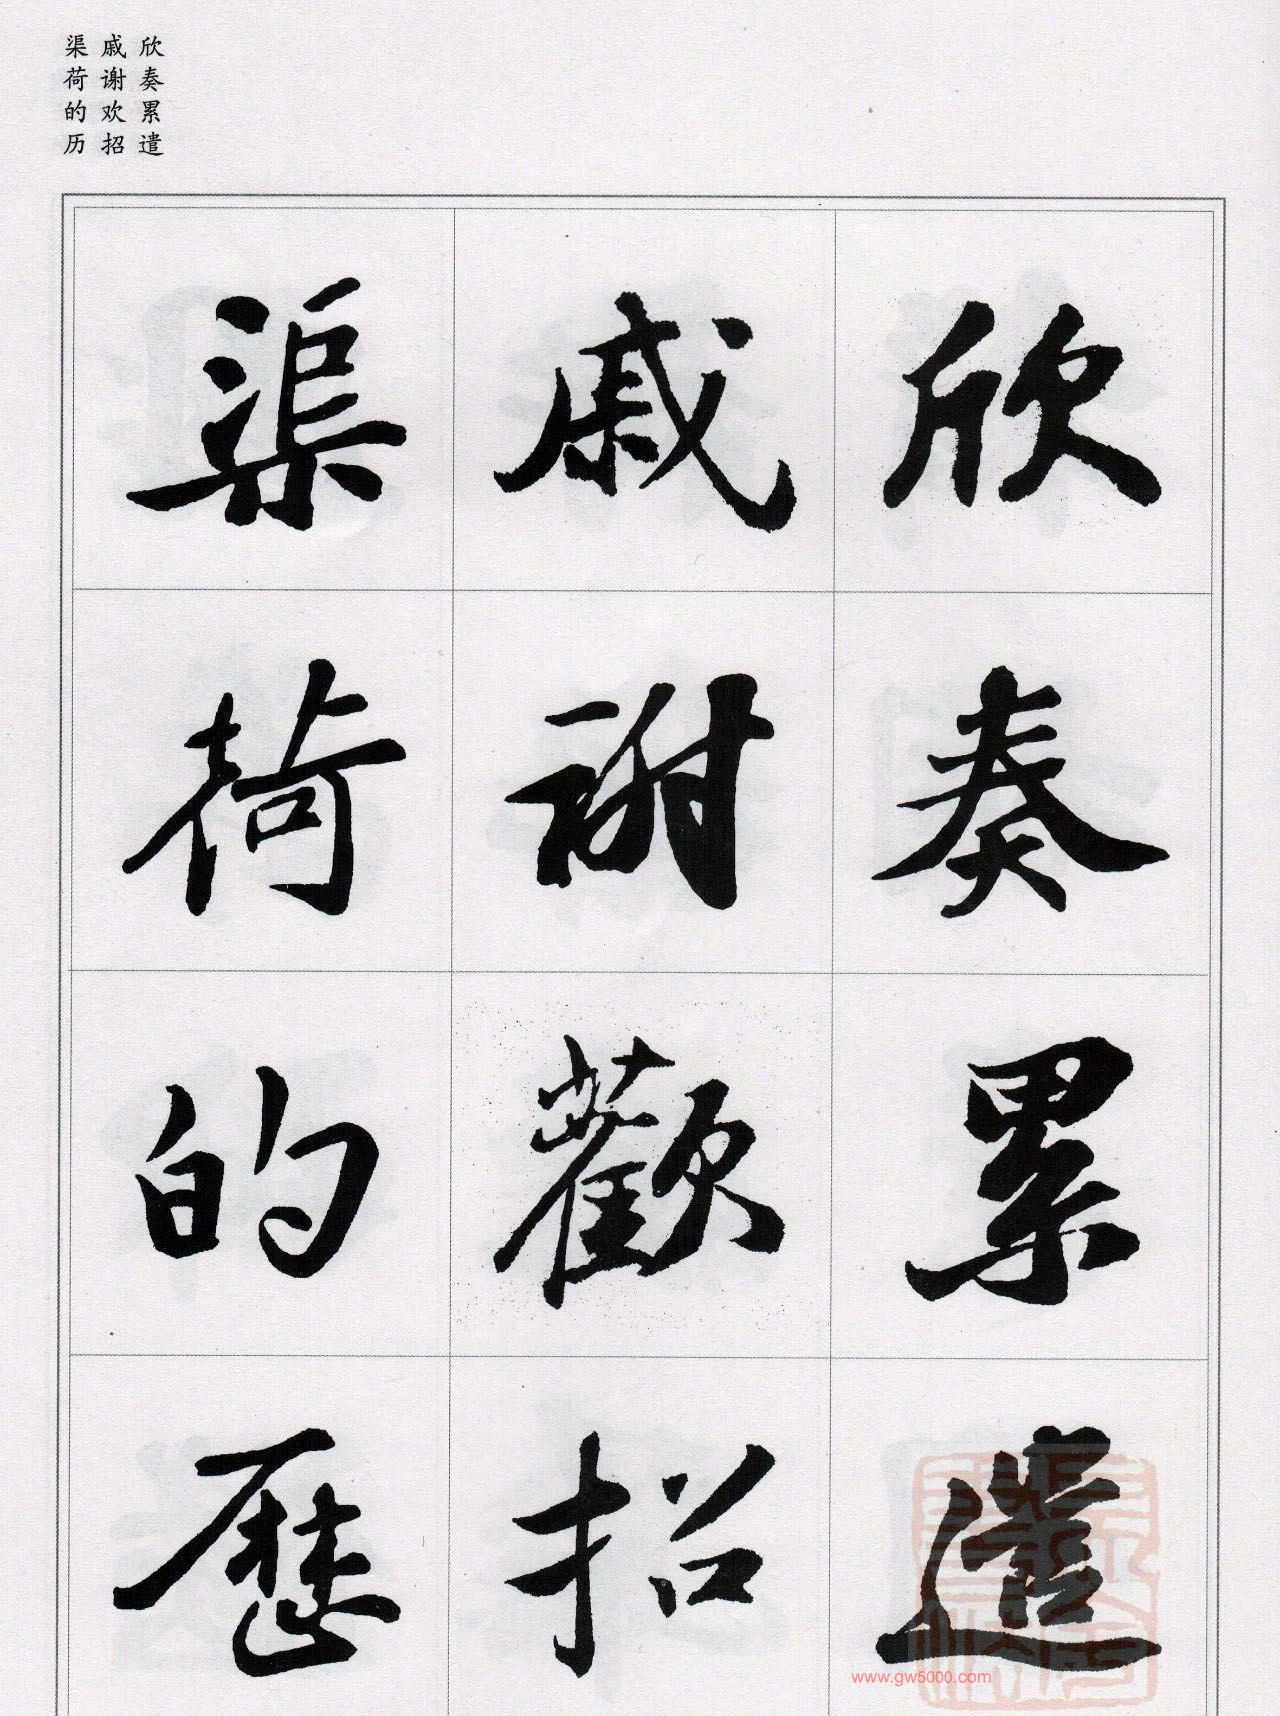 欣奏累遣
戚谢欢招
渠荷的历
欣奏累遣
慼謝歡招
渠荷的歷
www.gw5000.com